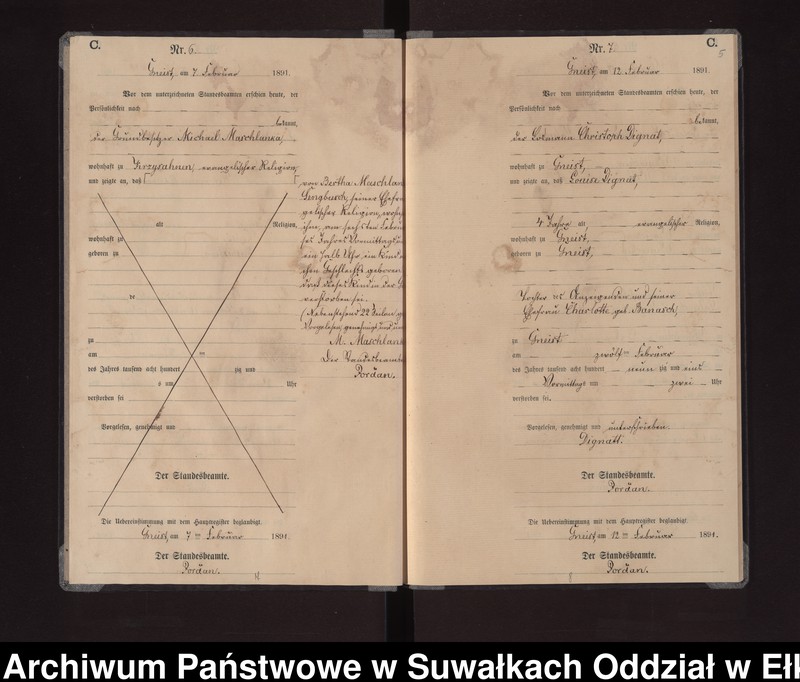 C.
Nr. 6
Gneist, am 7 Februar 1891.
Vor dem unterzeichneten Standesbeamten erschien heute, der
Persönlichkeit nach
bekannt,
der Grundbesitzer Michael Maschlanka,
wohnhaft zu evangelischer Religion,
und zeigte an, daß
alt Religion,
wohnhaft zu
geboren zu
zu
am ten
des Jahres tausend acht hundert zig und
um Uhr
verstorben sei
Vorgelesen, genehmigt und
Der Standesbeamte.
Die Uebereinstimmung mit dem Hauptregister beglaubigt.
Gneist, am 7 ten Februar 1891.
Der Standesbeamte.
Pordan.
von Bertha Maschlan
seiner Ehefra
gelischer Religion, wohn
ihm, am sechsten
ses Jahres Vormittags
ein halb Uhr ein Kind
chen Geschlechts geboren
daß dieses Kind in der
verstorben sei.
Vorgelesen, genehmigt und un
M. Maschlank
Der Standesbeamte
Pordan.
C.
5
Nr. 7
Gneist, am 12 Februar 1891.
Vor dem unterzeichneten Standesbeamten erschien heute, der
Persönlichkeit nach
bekannt,
der Losmann Christoph Dignat,
wohnhaft zu Gneist,
und zeigte an, daß Louise Dignat,
4 Jahre alt, evangelischer Religion,
wohnhaft zu Gneist,
geboren zu Gneist,
Tochter des Anzeigenden und seiner
Ehefrau Charlotte geb. Banasch,
zu Gneist
am zwölften Februar
des Jahres tausend acht hundert neun zig und eins
Vormittags um zwei Uhr
verstorben sei.
Vorgelesen, genehmigt und unterschrieben.
Dignatt.
Der Standesbeamte.
Pordan.
Die Uebereinstimmung mit dem Hauptregister beglaubigt.
Gneist, am 12 ten Februar 1891.
Der Standesbeamte.
Pordan.
Archiwum Państwowe w Suwałkach Oddział w Ełk